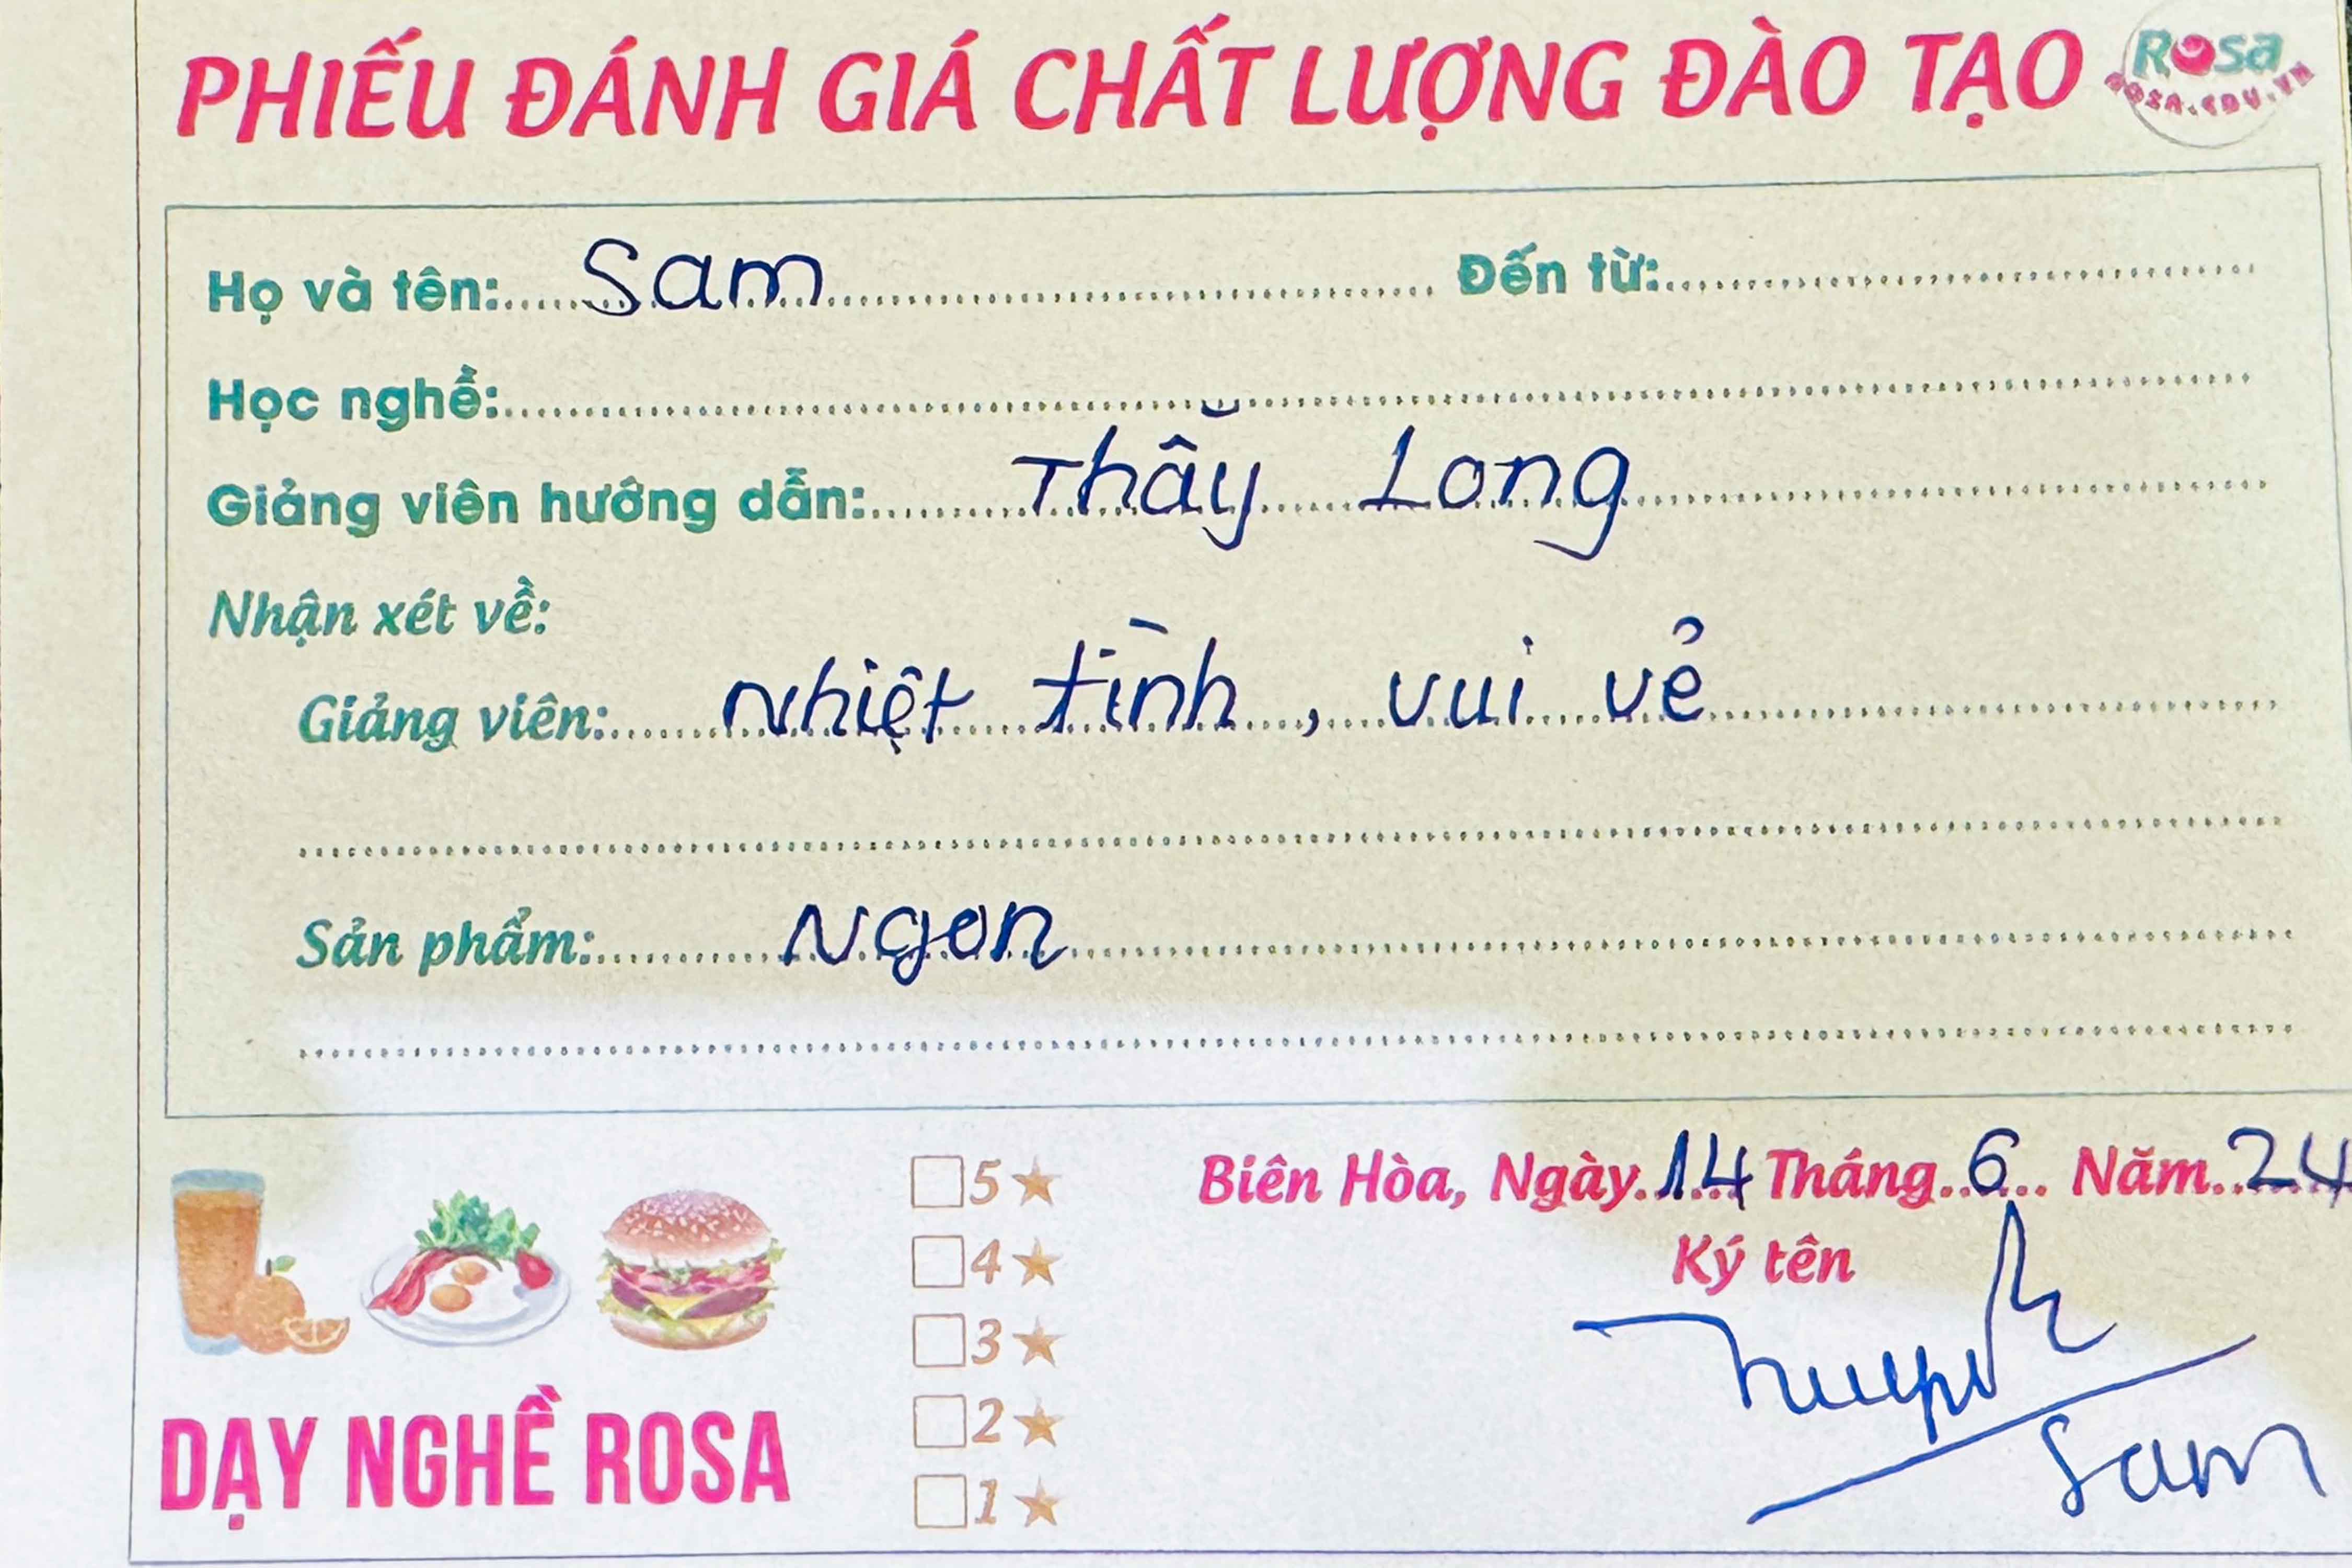 PHIẾU ĐÁNH GIÁ CHẤT LƯỢNG ĐÀO TẠO
Rosa
ROSA.EDU.VN
Họ và tên: Sam Đến từ:
Học nghề:
Giảng viên hướng dẫn: Thầy Long
Nhận xét về:
Giảng viên: Nhiệt tình, vui vẻ
Sản phẩm: Ngon
5
4
3
2
1
Biên Hòa, Ngày 14 Tháng 6 Năm 24
Ký tên
Sam
DẠY NGHỀ ROSA